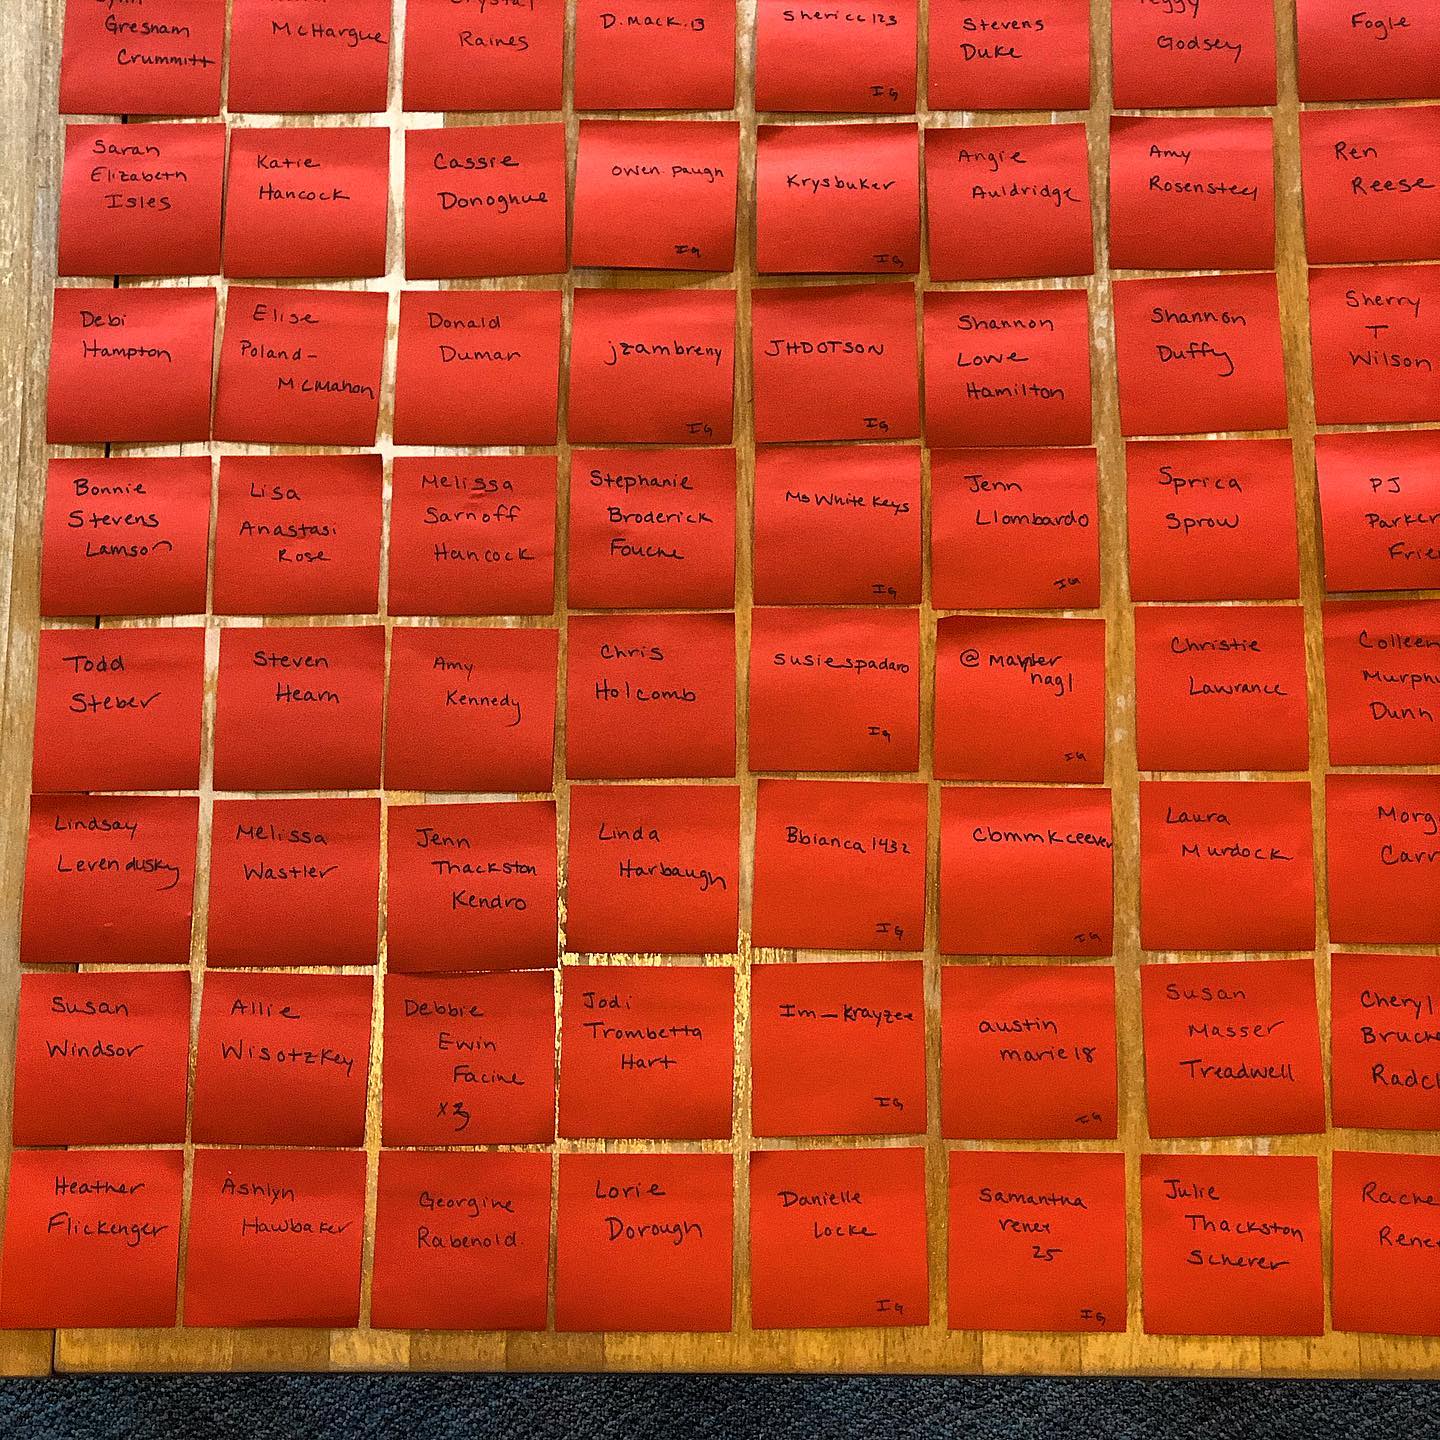 Gresham
Crummitt
McHargue
Crystal
Raines
D.mack.13
Sherice123
IG
Stevens
Duke
Peggy
Godsey
Fogle
Sarah
Elizabeth
Isles
Katie
Hancock
Cassie
Donoghue
owen.paugh
IG
Krysbuker
IG
Angie
Auldridge
Amy
Rosensteel
Ren
Reese
Debi
Hampton
Elise
Poland-
McMahon
Donald
Dumar
jzambreny
IG
JHDOTSON
IG
Shannon
Lowe
Hamilton
Shannon
Duffy
Sherry
T
Wilson
Bonnie
Stevens
Lamson
Lisa
Anastasi
Rose
Melissa
Sarnoff
Hancock
Stephanie
Broderick
Fouche
Ms White Keys
IG
Jenn
Llombardo
IG
Sprica
Sprow
PJ
Parker
Frie
Todd
Steber
Steven
Hearn
Amy
Kennedy
Chris
Holcomb
susiespadaro
IG
@
nagl
IG
Christie
Lawrance
Colleen
Murph
Dunn
Lindsay
Levendusky
Melissa
Wastler
Jenn
Thackston
Kendro
Linda
Harbaugh
Bbianca1432
IG
CbmmKceever
IG
Laura
Murdock
Morg
Carr
Susan
Windsor
Allie
Wisotzkey
Debbie
Ewin
Facine
Jodi
Trombetta
Hart
Im_Krayzee
IG
austin
marie18
IG
Susan
Masser
Treadwell
Cheryl
Bruch
Radcl
Heather
Flickenger
Ashlyn
Hawbaker
Georgine
Rabenold
Lorie
Dorough
Danielle
Locke
IG
Samantha
renee
25
IG
Julie
Thackston
Scherer
Rache
Rene